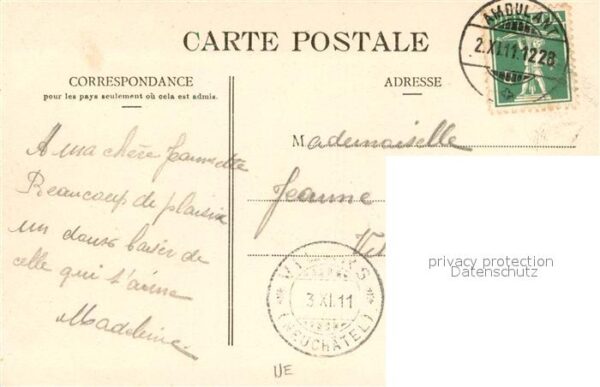 AMBULANT
2.XI.11.1228
CARTE POSTALE
CORRESPONDANCE
pour les pays seulement où cela est admis.
ADRESSE
A ma chère Jeannette
Beaucoup de plaisir
un doux baiser de
celle qui t'aime
Madeleine
Mademoiselle
Jeanne
privacy protection
Datenschutz
3.XI.11
(NEUCHÂTEL)
UE